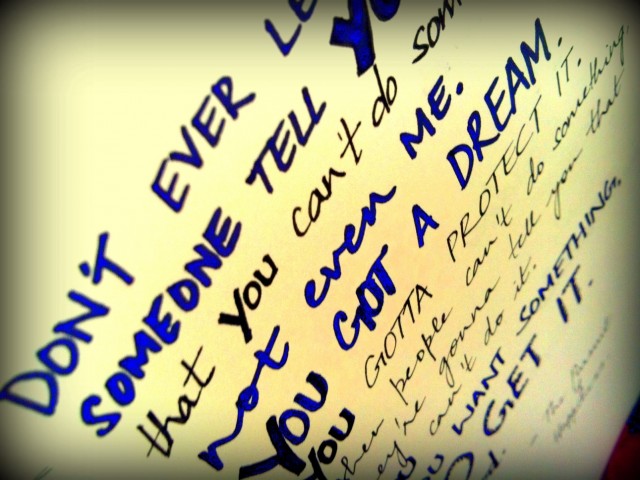 DON'T EVER LE
SOMEONE TELL YO
that you can't do som
not even ME.
YOU GOT A DREAM.
YOU GOTTA PROTECT IT.
when people can't do something
they're gonna tell you that
can't do it.
WANT SOMETHING,
GET IT.
- The Pursuit
Happiness